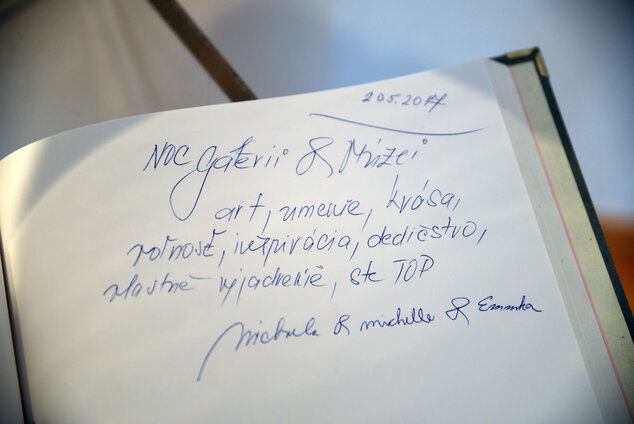 20.5.2017
NOC Galérií & Múzeí
art, umenie, krása,
voľnosť, inšpirácia, dedičstvo,
vlastné vyjadrenie, ste TOP
Michaela & Michelle & Emmka